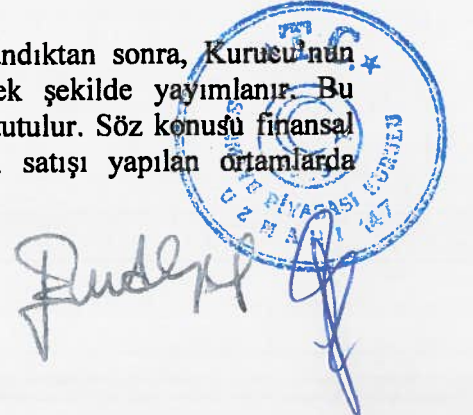 andıktan sonra, Kurucu'nun
ek şekilde yayımlanır. Bu
tutulur. Söz konusu finansal
satışı yapılan ortamlarda
T.C.
PİYASASI KURULU
UZMANI 147